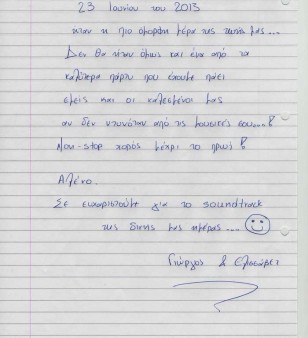 23 Ιουνίου του 2013
ήταν η πιο όμορφη μέρα της ζωής μας...
Δεν θα ήταν όμως και ένα από τα
καλύτερα πάρτυ που έχουμε πάει
εμείς και οι καλεσμένοι μας
αν δεν ντυνόταν από τις μουσικές σου...!
Non-stop χορός μέχρι το πρωί!
Αλένα.
Σε ευχαριστούμε για το soundtrack
της δικής μας ημέρας...
Γιώργος &